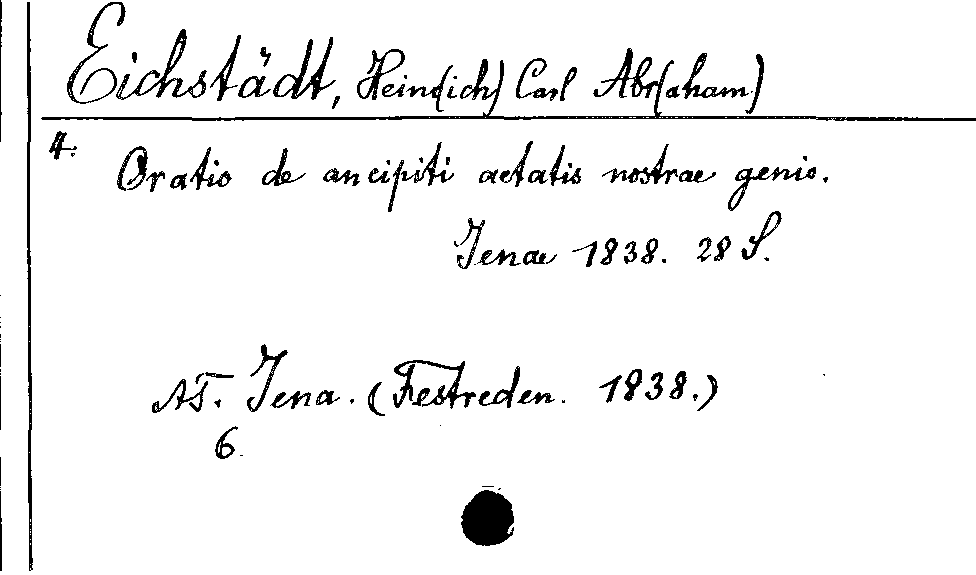 Eichstädt, Hein(ich) Carl Abr(aham)
4.
Oratio de ancipiti aetatis nostrae genio.
Jenae 1838. 28 S.
AT. Jena. (Festreden. 1838.)
6.